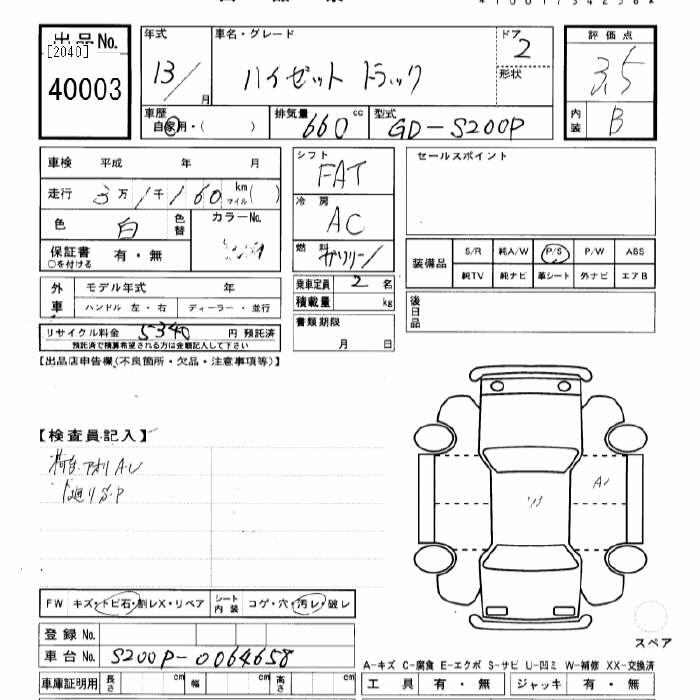 出品No.
[2040]
40003
年式
13/
月
車名・グレード
ハイゼット トラック
ドア
2
形状
評価点
3.5
内装
B
車歴
自家用・( )
排気量
660 cc
型式
GD-S200P
車検 平成 年 月
走行 3万1千160 km マイル( )
色 白 色替
カラーNo.
保証書 有・無
○を付ける
外車
モデル年式 年
ハンドル 左・右 ディーラー・並行
リサイクル料金 5340 円 預託済
預託済で積算希望される方は金額記入して下さい
【出品店申告欄(不良箇所・欠品・注意事項等)】
シフト
FAT
冷房
AC
燃料
ガソリン
乗車定員 2 名
積載量 kg
書類期限
月 日
セールスポイント
装備品
S/R 純A/W P/S P/W ABS
純TV 純ナビ 革シート 外ナビ エアB
後日品
【検査員記入】
A・U
S・P
A1
FW キズ・トビ石・割レX・リペア
シート内装 コゲ・穴・汚レ・破レ
登録No.
車台No. S200P-0064658
車庫証明用 長さ cm 幅 cm 高さ cm
スペア
A-キズ C-腐食 E-エクボ S-サビ U-凹ミ W-補修 XX-交換済
工具 有・無 ジャッキ 有・無